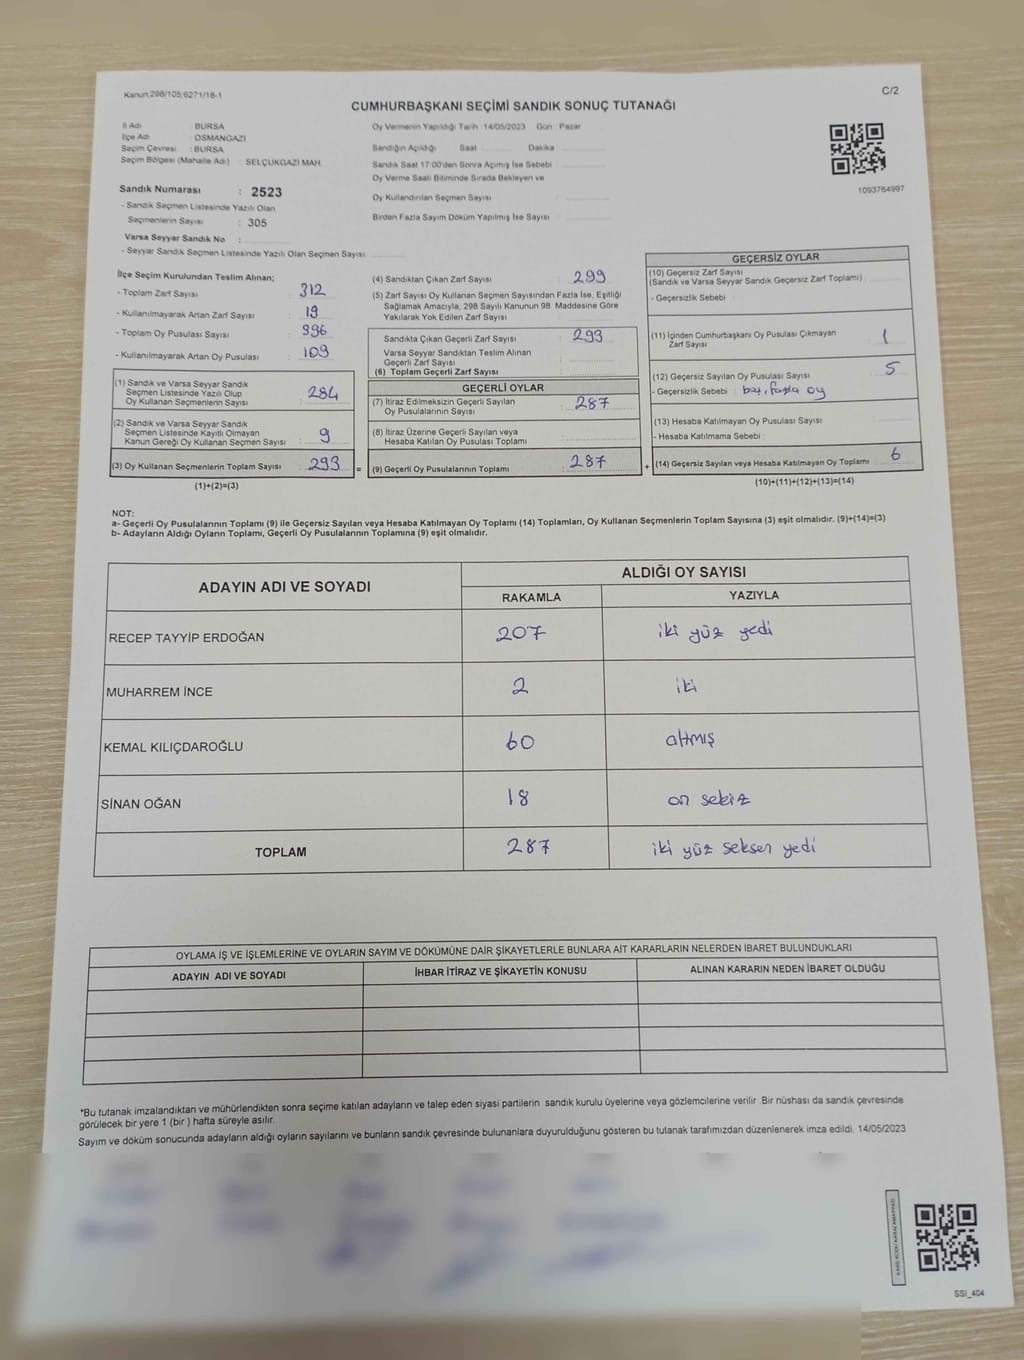 Kanun:298/105;6271/18-1
C/2
CUMHURBAŞKANI SEÇİMİ SANDIK SONUÇ TUTANAĞI
İl Adı : BURSA
İlçe Adı : OSMANGAZİ
Seçim Çevresi : BURSA
Seçim Bölgesi (Mahalle Adı) : SELÇUKGAZİ MAH.
Sandık Numarası : 2523
- Sandık Seçmen Listesinde Yazılı Olan
Seçmenlerin Sayısı : 305
Varsa Seyyar Sandık No :
- Seyyar Sandık Seçmen Listesinde Yazılı Olan Seçmen Sayısı:
Oy Vermenin Yapıldığı Tarih :14/05/2023 Gün : Pazar
Sandığın Açıldığı Saat Dakika
Sandık Saat 17:00'den Sonra Açımış İse Sebebi
Oy Verme Saati Bitiminde Sırada Bekleyen ve
Oy Kullandırılan Seçmen Sayısı
Birden Fazla Sayım Döküm Yapılmış İse Sayısı
1093764997
İlçe Seçim Kurulundan Teslim Alınan;
- Toplam Zarf Sayısı : 312
- Kullanılmayarak Artan Zarf Sayısı : 19
- Toplam Oy Pusulası Sayısı : 396
- Kullanılmayarak Artan Oy Pusulası : 109
(1) Sandık ve Varsa Seyyar Sandık
Seçmen Listesinde Yazılı Olup
Oy Kullanan Seçmenlerin Sayısı : 284
(2) Sandık ve Varsa Seyyar Sandık
Seçmen Listesinde Kayıtlı Olmayan
Kanun Gereği Oy Kullanan Seçmen Sayısı : 9
(3) Oy Kullanan Seçmenlerin Toplam Sayısı : 293 =
(1)+(2)=(3)
(4) Sandıktan Çıkan Zarf Sayısı : 293
(5) Zarf Sayısı Oy Kullanan Seçmen Sayısından Fazla İse, Eşitliği
Sağlamak Amacıyla; 298 Sayılı Kanunun 98. Maddesine Göre
Yakılarak Yok Edilen Zarf Sayısı :
Sandıkta Çıkan Geçerli Zarf Sayısı : 293
Varsa Seyyar Sandıktan Teslim Alınan
Geçerli Zarf Sayısı :
(6) Toplam Geçerli Zarf Sayısı
GEÇERLİ OYLAR
(7) İtiraz Edilmeksizin Geçerli Sayılan
Oy Pusulalarının Sayısı : 287
(8) İtiraz Üzerine Geçerli Sayılan veya
Hesaba Katılan Oy Pusulası Toplamı :
(9) Geçerli Oy Pusulalarının Toplamı : 287 +
GEÇERSİZ OYLAR
(10) Geçersiz Zarf Sayısı
(Sandık ve Varsa Seyyar Sandık Geçersiz Zarf Toplamı)
- Geçersizlik Sebebi :
(11) İçinden Cumhurbaşkanı Oy Pusulası Çıkmayan
Zarf Sayısı : 1
(12) Geçersiz Sayılan Oy Pusulası Sayısı 5
- Geçersizlik Sebebi : boş, fazla oy
(13) Hesaba Katılmayan Oy Pusulası Sayısı
- Hesaba Katılmama Sebebi :
(14) Geçersiz Sayılan veya Hesaba Katılmayan Oy Toplamı 6
(10)+(11)+(12)+(13)=(14)
NOT:
a- Geçerli Oy Pusulalarının Toplamı (9) ile Geçersiz Sayılan veya Hesaba Katılmayan Oy Toplamı (14) Toplamları, Oy Kullanan Seçmenlerin Toplam Sayısına (3) eşit olmalıdır. (9)+(14)=(3)
b- Adayların Aldığı Oyların Toplamı, Geçerli Oy Pusulalarının Toplamına (9) eşit olmalıdır.
ADAYIN ADI VE SOYADI
ALDIĞI OY SAYISI
RAKAMLA YAZIYLA
RECEP TAYYİP ERDOĞAN 207 iki yüz yedi
MUHARREM İNCE 2 iki
KEMAL KILIÇDAROĞLU 60 altmış
SİNAN OĞAN 18 on sekiz
TOPLAM 287 iki yüz seksen yedi
OYLAMA İŞ VE İŞLEMLERİNE VE OYLARIN SAYIM VE DÖKÜMÜNE DAİR ŞİKAYETLERLE BUNLARA AİT KARARLARIN NELERDEN İBARET BULUNDUKLARI
ADAYIN ADI VE SOYADI İHBAR İTİRAZ VE ŞİKAYETİN KONUSU ALINAN KARARIN NEDEN İBARET OLDUĞU
*Bu tutanak imzalandıktan ve mühürlendikten sonra seçime katılan adayların ve talep eden siyasi partilerin sandık kurulu üyelerine veya gözlemcilerine verilir. Bir nüshası da sandık çevresinde
görülecek bir yere 1 (bir ) hafta süreyle asılır.
Sayım ve döküm sonucunda adayların aldığı oyların sayılarını ve bunların sandık çevresinde bulunanlara duyurulduğunu gösteren bu tutanak tarafımızdan düzenlenerek imza edildi. 14/05/2023
SSI_404